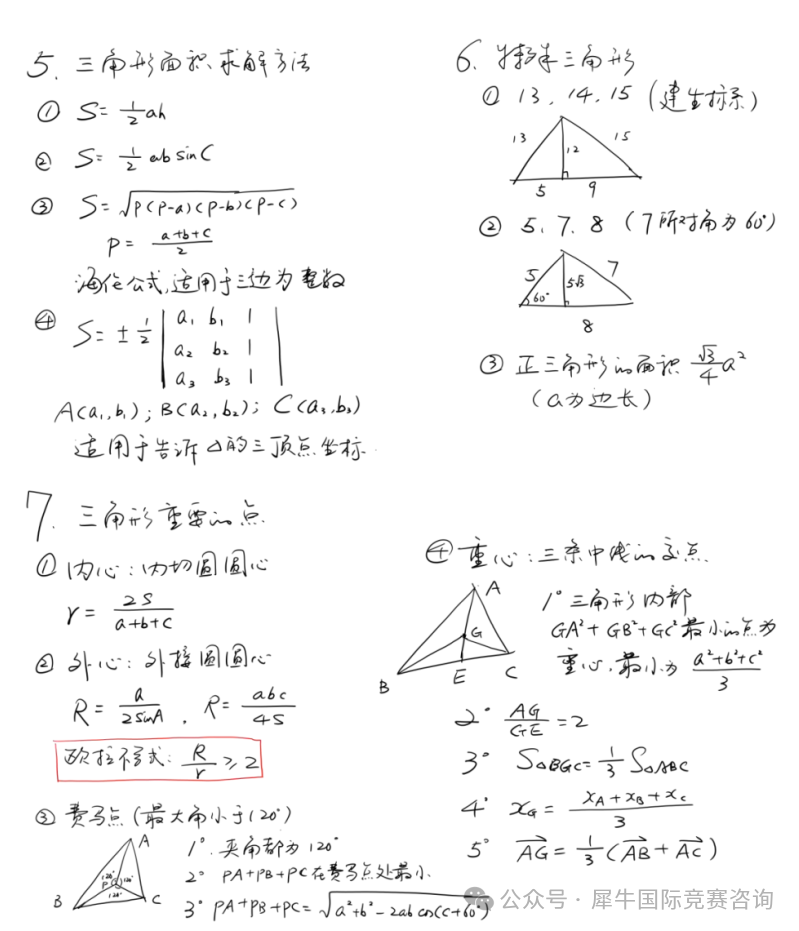 5. 三角形面积求解方法
① S = 1/2 ah
② S = 1/2 ab sinC
③ S = √P(P-a)(P-b)(P-c)
P = a+b+c/2
海伦公式,适用于三边为整数
④ S = ± 1/2 | a₁ b₁ 1 |
| a₂ b₂ 1 |
| a₃ b₃ 1 |
A(a₁,b₁); B(a₂,b₂); C(a₃,b₃)
适用于告诉△的三顶点坐标.
6. 特殊三角形
① 13, 14, 15 (建坐标系)
13 12 15
5 9
② 5、7、8 (7所对角为60°)
5 5√3 7
60°
8
③ 正三角形的面积 √3/4 a²
(a为边长)
7. 三角形重要的点
① 内心:内切圆圆心
r = 2S/a+b+c
② 外心:外接圆圆心
R = a/2sinA , R = abc/4S
欧拉不等式: R/r ≥ 2
③ 费马点 (最大角小于120°)
A
P 120° 120° 120°
B C
1° 夹角都为120°
2° PA+PB+PC在费马点处最小
3° PA+PB+PC = √a²+b²-2ab cos(C+60°)
④ 重心:三条中线的交点
A
G
B E C
1° 三角形内部
GA²+GB²+GC²最小的点为
重心,最小为 a²+b²+c²/3
2° AG/GE = 2
3° S△BGC = 1/3 S△ABC
4° xG = xA+xB+xC/3
5° AG = 1/3 (AB + AC)
公众号·犀牛国际竞赛咨询